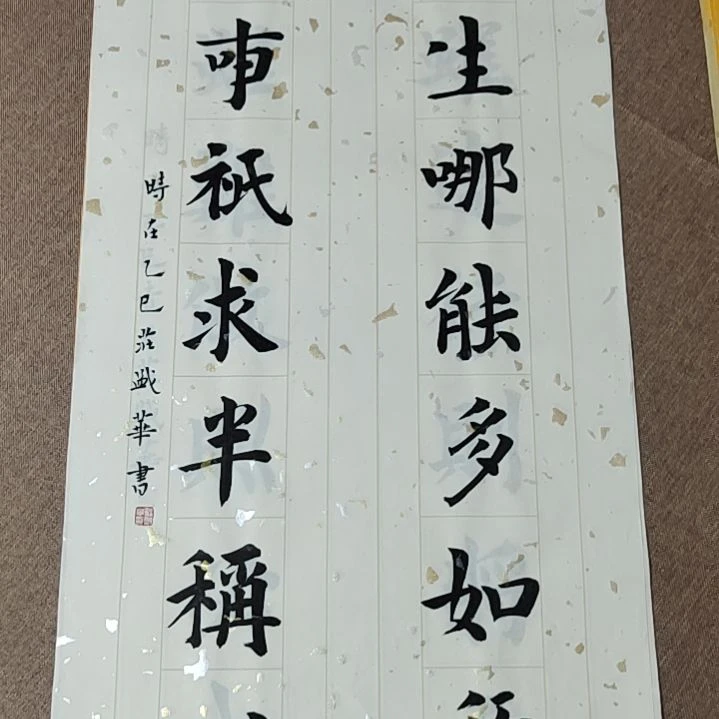 生哪能多如
事祇求半稱
時在乙巳莊
華書